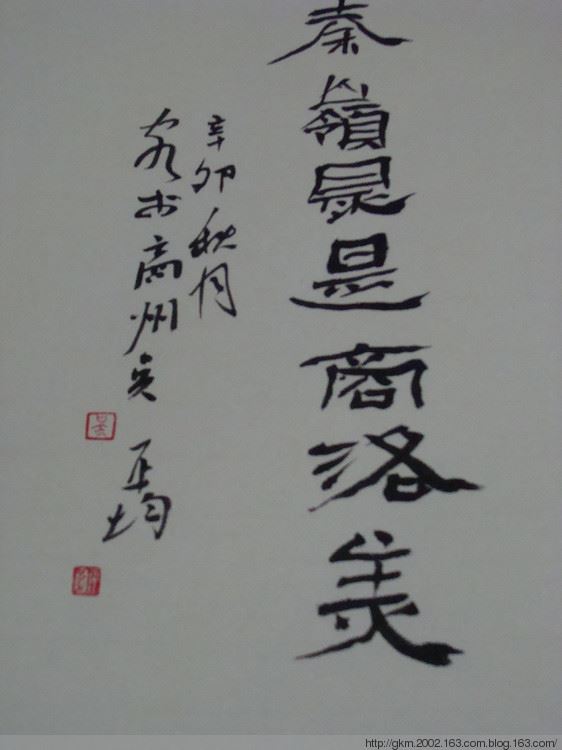 秦嶺最是商洛美
辛卯秋月
商州 正均
http://gkm.2002.163.com.blog.163.com/